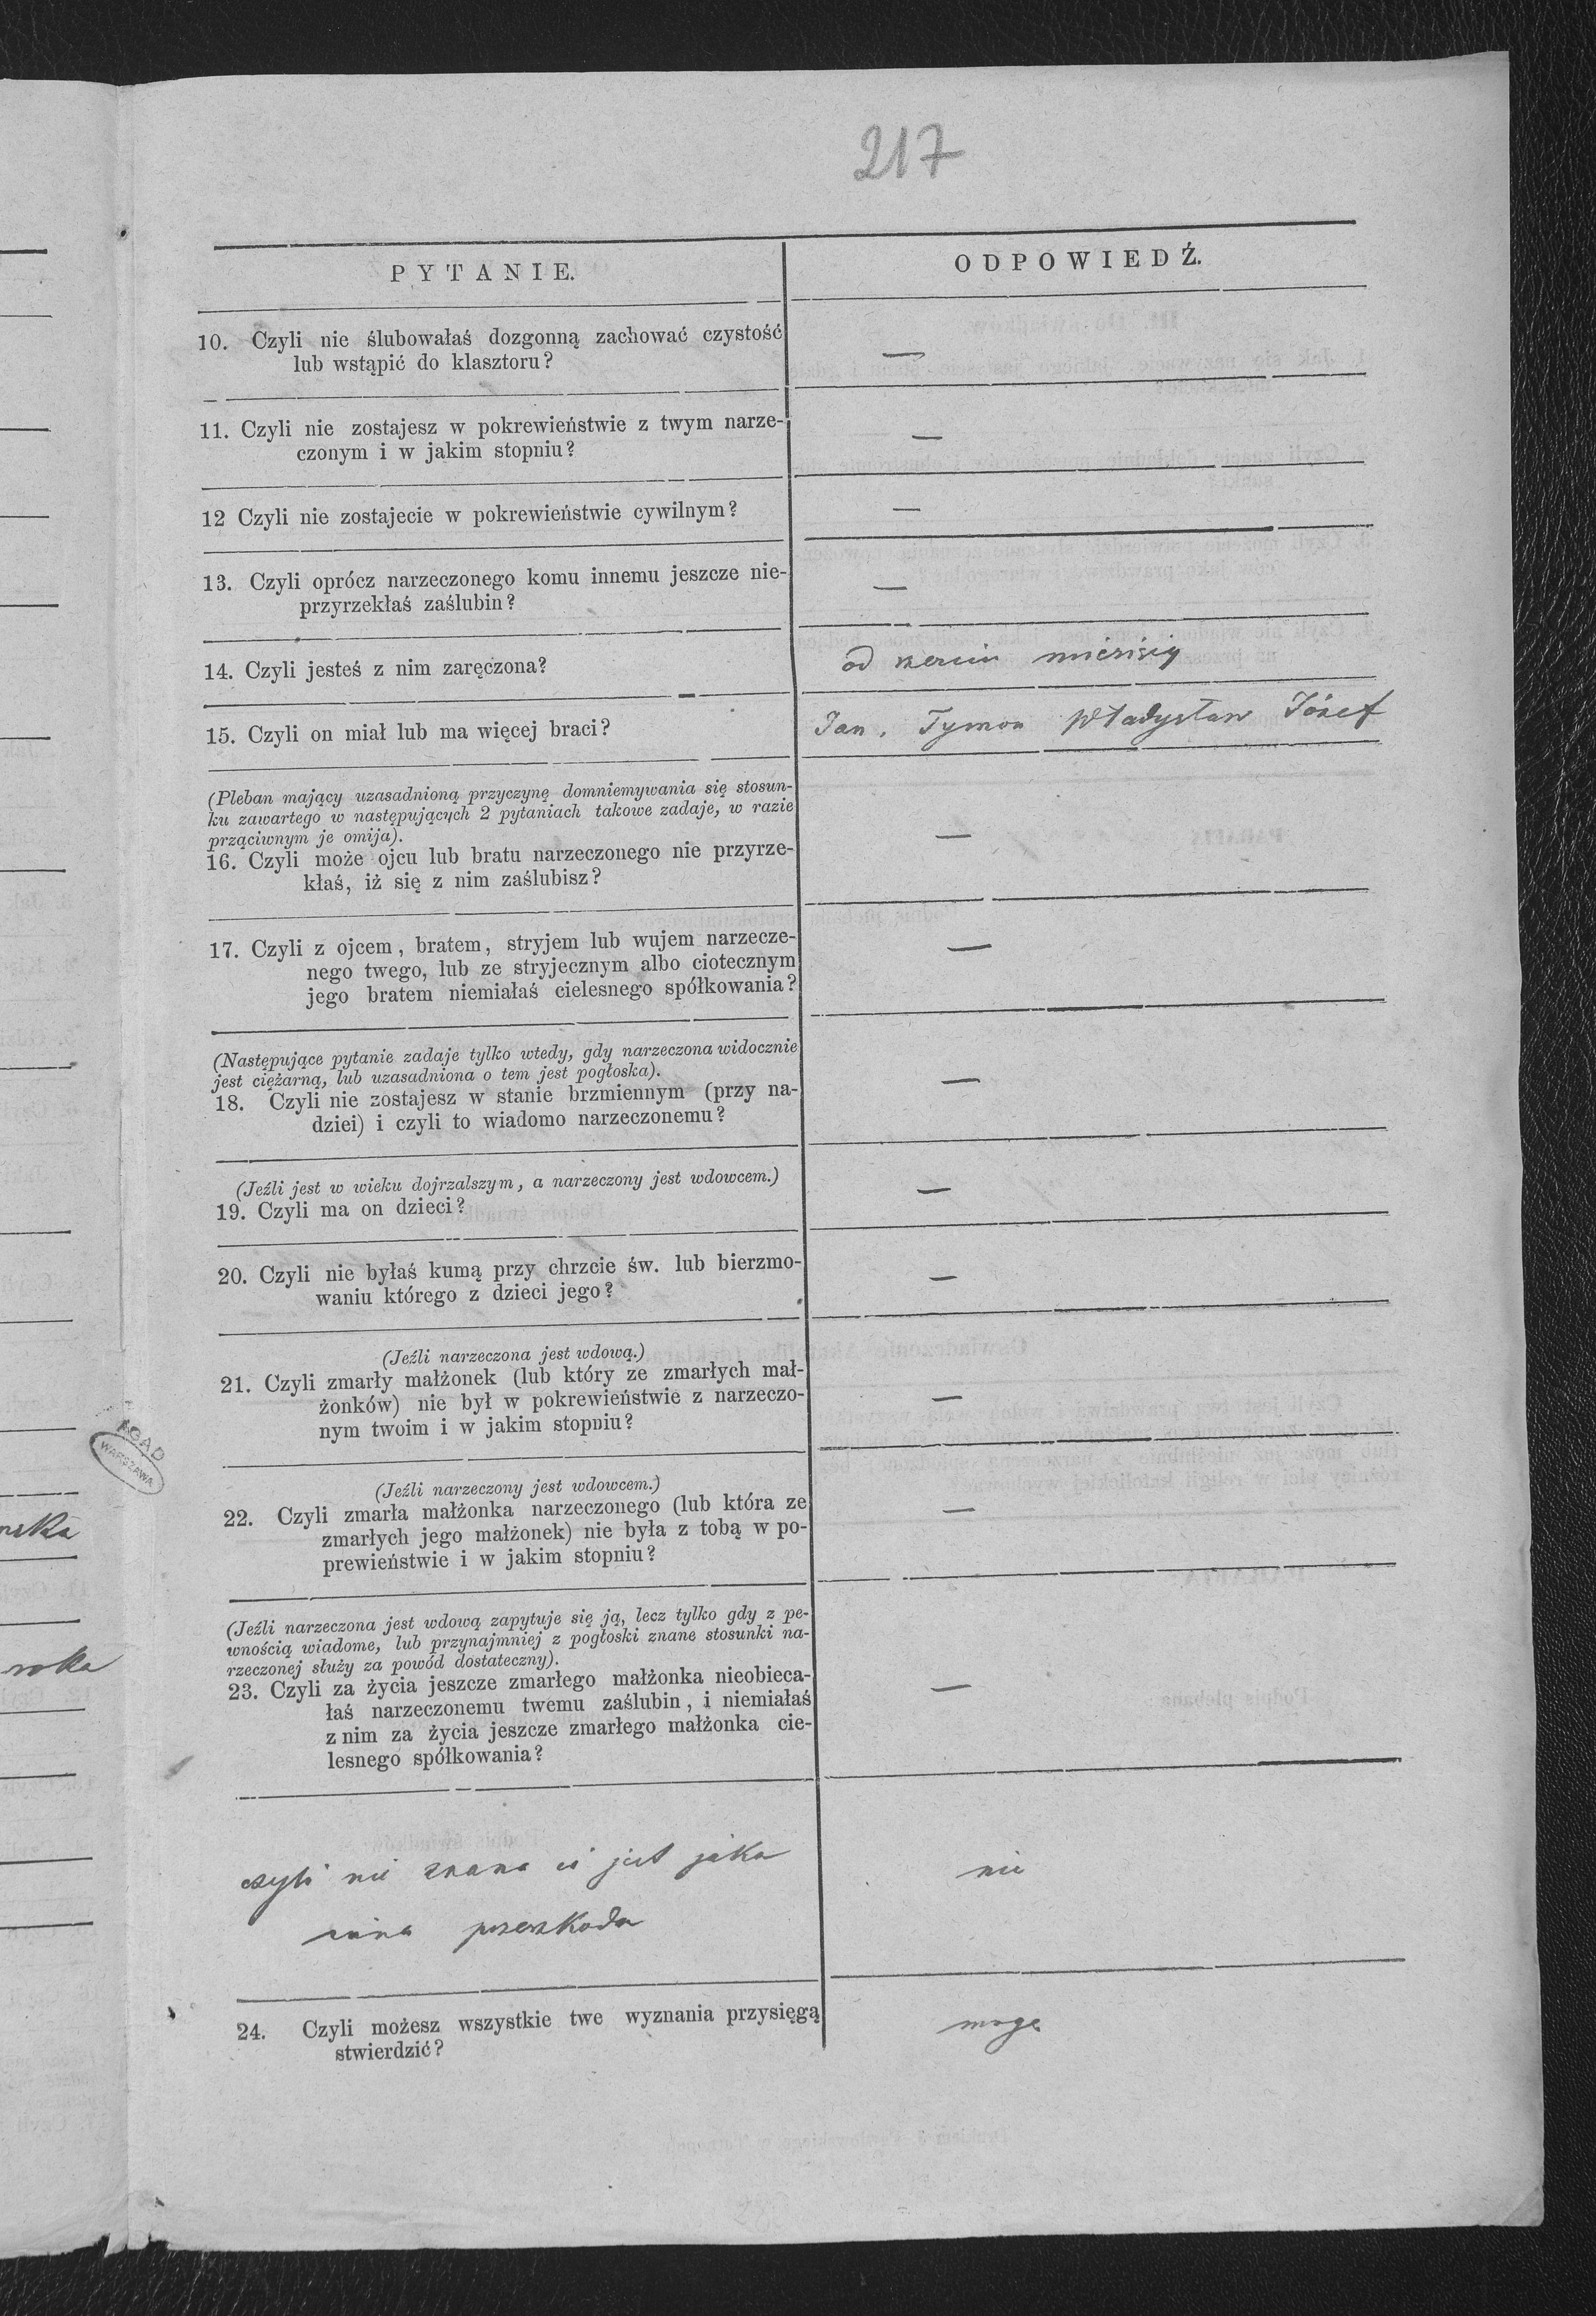 217
PYTANIE.
ODPOWIEDŹ.
10. Czyli nie ślubowałaś dozgonną zachować czystość
lub wstąpić do klasztoru?
—
11. Czyli nie zostajesz w pokrewieństwie z twym narze-
czonym i w jakim stopniu?
—
12 Czyli nie zostajecie w pokrewieństwie cywilnym?
—
13. Czyli oprócz narzeczonego komu innemu jeszcze nie-
przyrzekłaś zaślubin?
—
14. Czyli jesteś z nim zaręczona?
od
15. Czyli on miał lub ma więcej braci?
Jan, Tymon Władysław Józef
(Pleban mający uzasadnioną przyczynę domniemywania się stosun-
ku zawartego w następujących 2 pytaniach takowe zadaje, w razie
prząciwnym je omija).
16. Czyli może ojcu lub bratu narzeczonego nie przyrze-
kłaś, iż się z nim zaślubisz?
—
17. Czyli z ojcem, bratem, stryjem lub wujem narzecze-
nego twego, lub ze stryjecznym albo ciotecznym
jego bratem niemiałaś cielesnego spółkowania?
—
(Następujące pytanie zadaje tylko wtedy, gdy narzeczona widocznie
jest ciężarną, lub uzasadniona o tem jest pogłoska).
18. Czyli nie zostajesz w stanie brzmiennym (przy na-
dziei) i czyli to wiadomo narzeczonemu?
—
(Jeźli jest w wieku dojrzalszym, a narzeczony jest wdowcem.)
19. Czyli ma on dzieci?
—
20. Czyli nie byłaś kumą przy chrzcie św. lub bierzmo-
waniu którego z dzieci jego?
—
(Jeźli narzeczona jest wdową.)
21. Czyli zmarły małżonek (lub który ze zmarłych mał-
żonków) nie był w pokrewieństwie z narzeczo-
nym twoim i w jakim stopniu?
—
(Jeźli narzeczony jest wdowcem.)
22. Czyli zmarła małżonka narzeczonego (lub która ze
zmarłych jego małżonek) nie była z tobą w po-
prewieństwie i w jakim stopniu?
—
(Jeźli narzeczona jest wdową zapytuje się ją, lecz tylko gdy z pe-
wnością wiadome, lub przynajmniej z pogłoski znane stosunki na-
rzeczonej służy za powód dostateczny).
23. Czyli za życia jeszcze zmarłego małżonka nieobieca-
łaś narzeczonemu twemu zaślubin, i niemiałaś
z nim za życia jeszcze zmarłego małżonka cie-
lesnego spółkowania?
—
czyli nie znana ci jest jaka
przeszkoda
nie
24. Czyli możesz wszystkie twe wyznania przysięgą
stwierdzić?
mogę
AGAD
WARSZAWA